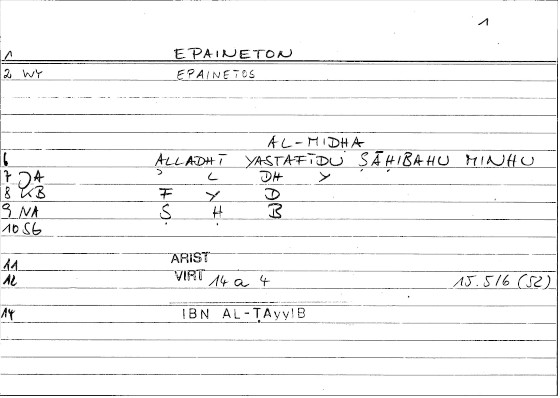 1
1 EPAINETON
2 WY EPAINETOS
AL-MIDḤA
6 ALLADHĪ YASTAFĪDU ṢĀḤIBAHU MINHU
7 A L DH Y
8 KB F Y D
9 NA Ṣ Ḥ B
10 SG
11 ARIST
12 VIRT 14 a 4 15.5/6 (52)
14 IBN AL-ṬAyyIB